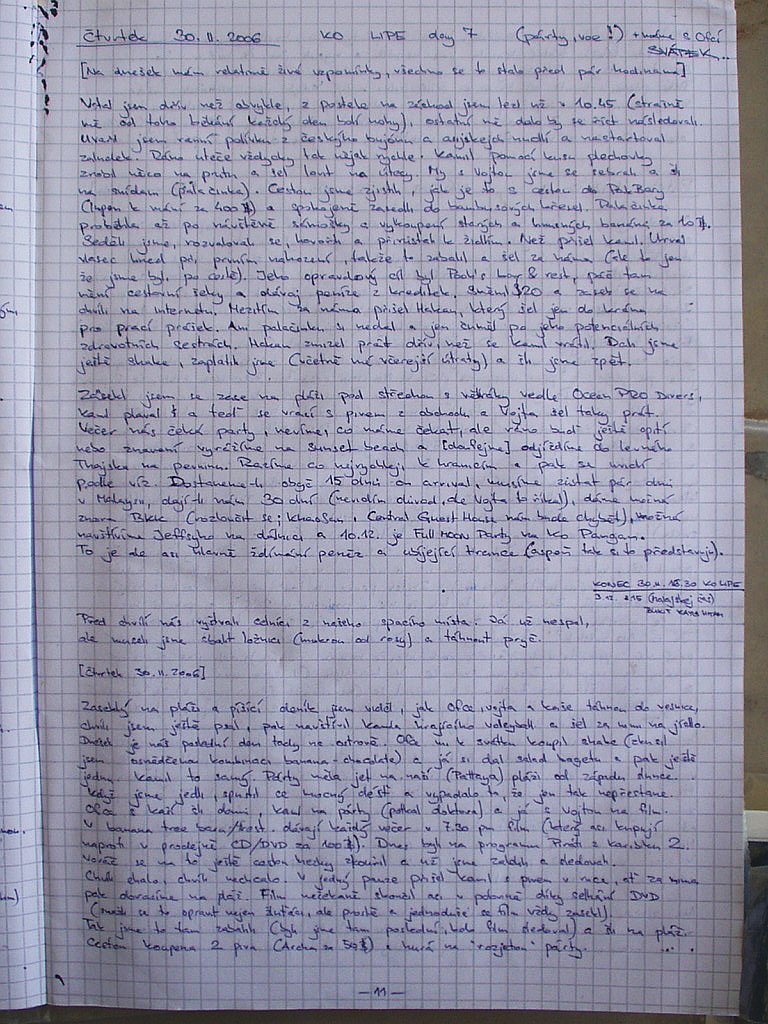 Čtvrtek 30.11.2006 KO LIPE day 7 (párty, voe!) + máme s Ofcí
SVÁTEK...
[Na dnešek mám relativně živé vzpomínky, všechno se to stalo před pár hodinama]
Vstal jsem dřív než obvykle, z postele na záchod jsem lezl už v 10.45 (strašně
mě od toho běhání každý den bolí nohy), ostatní mě dalo by se říct následovali.
Uvařil jsem ranní polívku z českýho bujónu a asijskejch nudlí a nastartoval
žaludek. Ráno uteče vždycky tak nějak rychle. Kamil pomocí kusu plechovky
zrobil něco na prutu a šel lovit na útesy. My s Vojtou jsme se sebrali a šli
na snídani (palačinka). Cestou jsme zjistili, jak je to s cestou do Pak Bary
(lupen k mání za 400 ฿) a spokojeně zasedli do bambusových křesel. Palačinka
proběhla až po návštěvě sámošky a vykoupení starých a hnusných banánů za 10 ฿.
Seděli jsme, rozvalovali se, hovořili a přirůstali k židlím. Než přišel Kamil. Urval
vasec hned při prvním nahození, takže to zabalil a šel za náma (šel to jen
že jsme byli po cestě). Jeho opravdový cíl byl Pooh's bar & rest, páč tam
mění cestovní šeky a dávaj peníze z kreditek. Směnil $20 a zasek se na
chvíli na internetu. Mezitím za náma přišel Hakan, který šel jen do krámu
pro prací prášek. Ani palačinku si nedal a jen čuměl po jeho potenciálních
zdravotních sestrách. Hakan zmizel prát dřív, než se Kamil vrátil. Dali jsme
ještě shake, zaplatili jsme (včetně mé včerejší útraty) a šli jsme zpět.
Zasekl jsem se zase na pláži pod střechou s větráky vedle Ocean PRO Divers,
Kamil plaval š a teď se vrací s pivem z obchodu a Vojta šel taky prát.
Večer nás čeká party, nevíme, co máme čekat, ale ráno buď ještě opití
nebo znavení vyrážíme na Sunset beach a [doufejme] odjíždíme do levného
Thajska na pevninu. Razíme co nejrychlej k hranicím a pak se uvidí
podle víz. Dostaneme-li obyč 15 dnů on arrival, musíme zůstat pár dní
v Malajsii, dají-li nám 30 dní (nevidím důvod, ale Vojta to říkal), dáme možná
znova BKK (rozloučit se, Khao San i Central Guest House nám bude chybět), možná
navštívíme Jeffsyho na dálnici a 10.12. je Full Moon Party na Ko Pangan.
To je ale asi hlavně ždímání peněz a ubíjející trance (aspoň tak si to představuju).
KONEC 30.11. 18.30 KO LIPE
3.12. 8.15 (malajskej čas)
BUKIT KAYU HITAM
Před chvílí nás vyštvali celníci z našeho spacího místa. Já už nespal,
ale museli jsme sbalit ložnici (mokrou od rosy) a táhnout pryč.
[Čtvrtek 30.11.2006]
Zaseklý na pláži a píšící deník jsem viděl, jak Ofce, Vojta a Kaše táhnou do vesnice,
chvíli jsem ještě psal, pak navštívil Kamila hrajícího voleyball a šel za nima na jídlo.
Dnešek je náš poslední den tady na ostrově. Ofce mi k svátku koupil shake (zkusil
jsem osvědčenou kombinaci banana-chocolate) a já si dal salad bagetu a pak ještě
jednu. Kamil to samý. Párty měla jet na naší (Pattaya) pláži od západu slunce.
Když jsme jedli, spustil se mocný déšť a vypadalo to, že jen tak nepřestane.
Ofce s Kaší šli domů, Kamil na párty (potkal doktora) a já s Vojtou na film.
V banana tree baru/rest. dávají každý večer v 7.30 pm film (který asi kupují
naproti v prodejně CD/DVD za 100 ฿). Dnes byli na programu Piráti z karibiku 2.
Venku se mi to ještě cestou hezky zpočinil a už jsme zalehli a sledovali.
Chvíli chcalo, chvíli nechcalo. V jedný pauze přišel Kamil s pivem v ruce, ať za nima
pak dorazíme na pláž. Film nečekaně skončil asi v polovině díky selhání DVD
(snažili se to opravit nejen žlutásci, ale prostě a jednoduše se film vždy zasekl).
Tak jsme to tam zabalili (byli jsme tam poslední, kdo film sledoval) a šli na pláž.
Cestou koupena 2 piva (Archa za 59 ฿) a hurá na "rozjetou" párty.
— 11 —